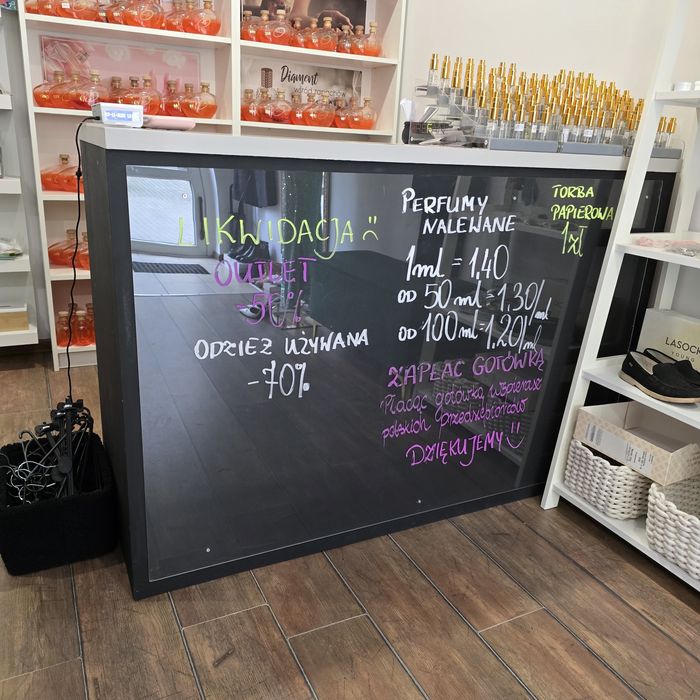 Diament
LIKWIDACJA :(
OUTLET
-50%
ODZIEŻ UŻYWANA
-70%
PERFUMY
NALEWANE
1ml = 1,40
OD 50 ml = 1,30/ml
OD 100 ml = 1,20/ml
ZAPŁAĆ GOTÓWKĄ
Płacąc gotówką wspierasz
polskich przedsiębiorców
DZIĘKUJEMY :)
TORBA
PAPIEROWA
1zł
LASOCKI
YOUNG